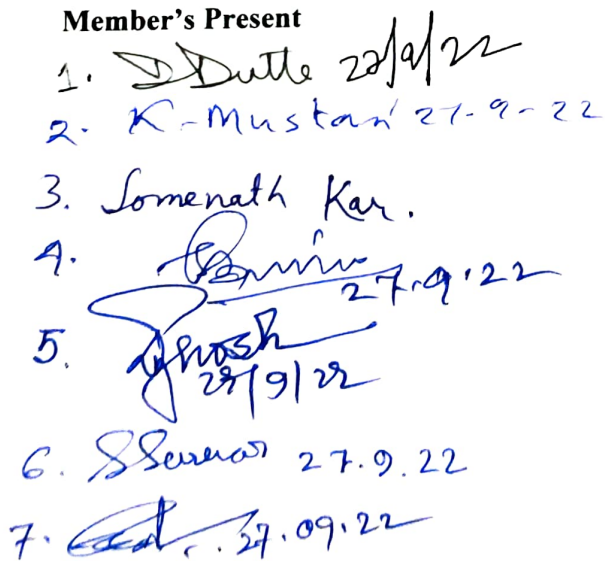 Member's Present
1. D Dutta 27/9/22
2. K-Mustari 27-9-22
3. Somenath Kar.
4. 27.9.22
5. Ghosh
27/9/22
6. SSarkar 27.9.22
7. 27.09.22